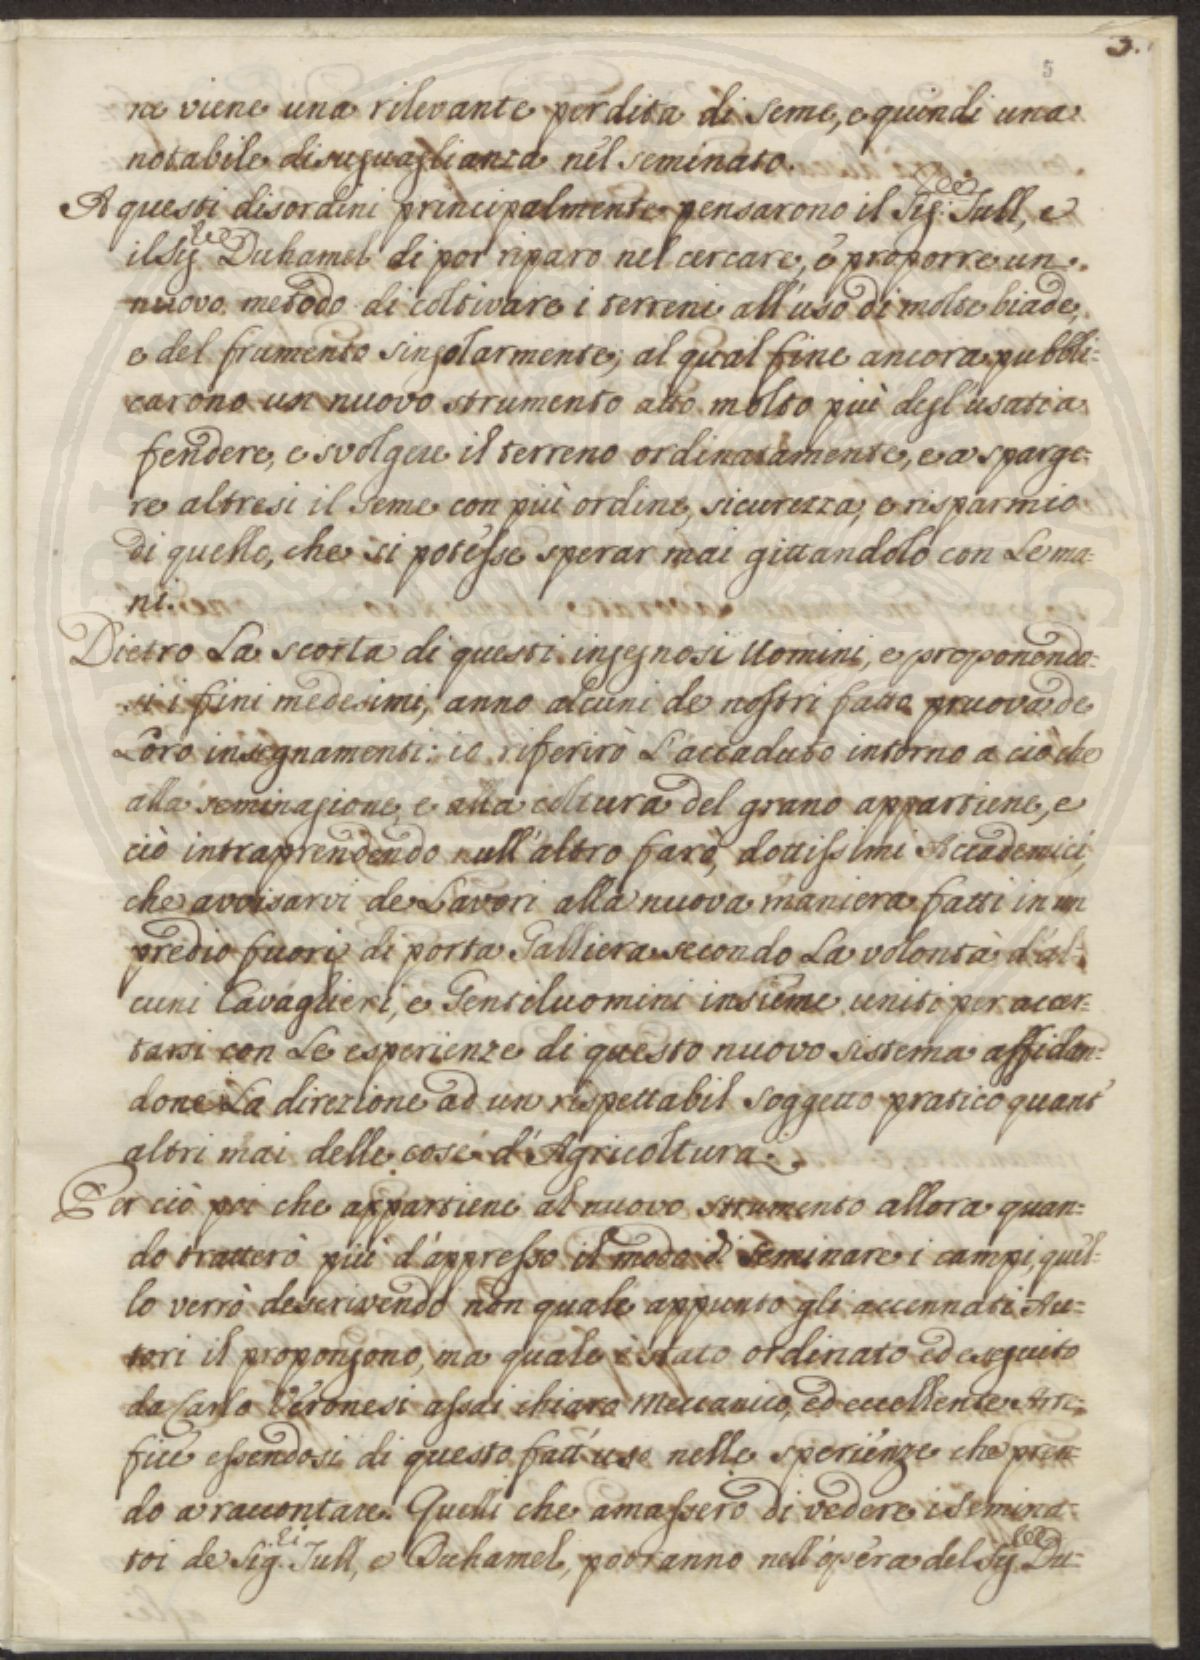 3.
5
ne viene una rilevante perdita di seme, e quindi una
notabile disuguaglianza nel seminato.
A questi disordini principalmente pensarono il Sig.re Tull, e
il Sig.re Duhamel di por riparo nel cercare, e proporre un
nuovo metodo di coltivare i terreni all'uso di molte biade,
e del framento singolarmente; al qual fine ancora pubbli-
carono un nuovo strumento atto molto più degl'usati a
fendere, e svolgere il terreno ordinatamente, e a sparge-
re altresi il seme con più ordine, sicurezza, e risparmio
di quello, che si potesse sperar mai gittandolo con le ma-
ni.
Dietro la scorta di questi ingegnosi Uomini, e proponendo-
si i fini medesimi, anno alcuni de nostri fatto pruova de
loro insegnamenti: io riferirò l'accaduto intorno a ciò che
alla seminagione, e alla coltura del grano appartiene, e
ciò intraprendendo null'altro farò, dottissimi Accademici,
che avvisarvi de lavori alla nuova maniera fatti in un
predio fuori di porta Galliera secondo la volontà d'al-
cuni Cavaglieri, e Gentiluomini insieme uniti per accer-
tarsi con le esperienze di questo nuovo sistema affidan-
done la direzione ad un rispettabil soggetto pratico quant'
altri mai delle cose d'Agricoltura.
Per ciò poi che appartiene al nuovo strumento allora quan-
do tratterò più d'appresso il modo di seminare i campi, quel-
lo verrò descrivendo non quale appunto gli accennati Au-
tori il propongono, ma quale è stato ordinato ed eseguito
da Carlo Veronesi assai chiaro Meccanico, ed eccellente Arte-
fice essendosi di questo fatt'uso nelle sperienze che pren-
do a raccontare. Quelli che amassero di vedere i semina-
toi de Sig.ri Tull, e Duhamel, potranno nell'opera del Sig.re Du-